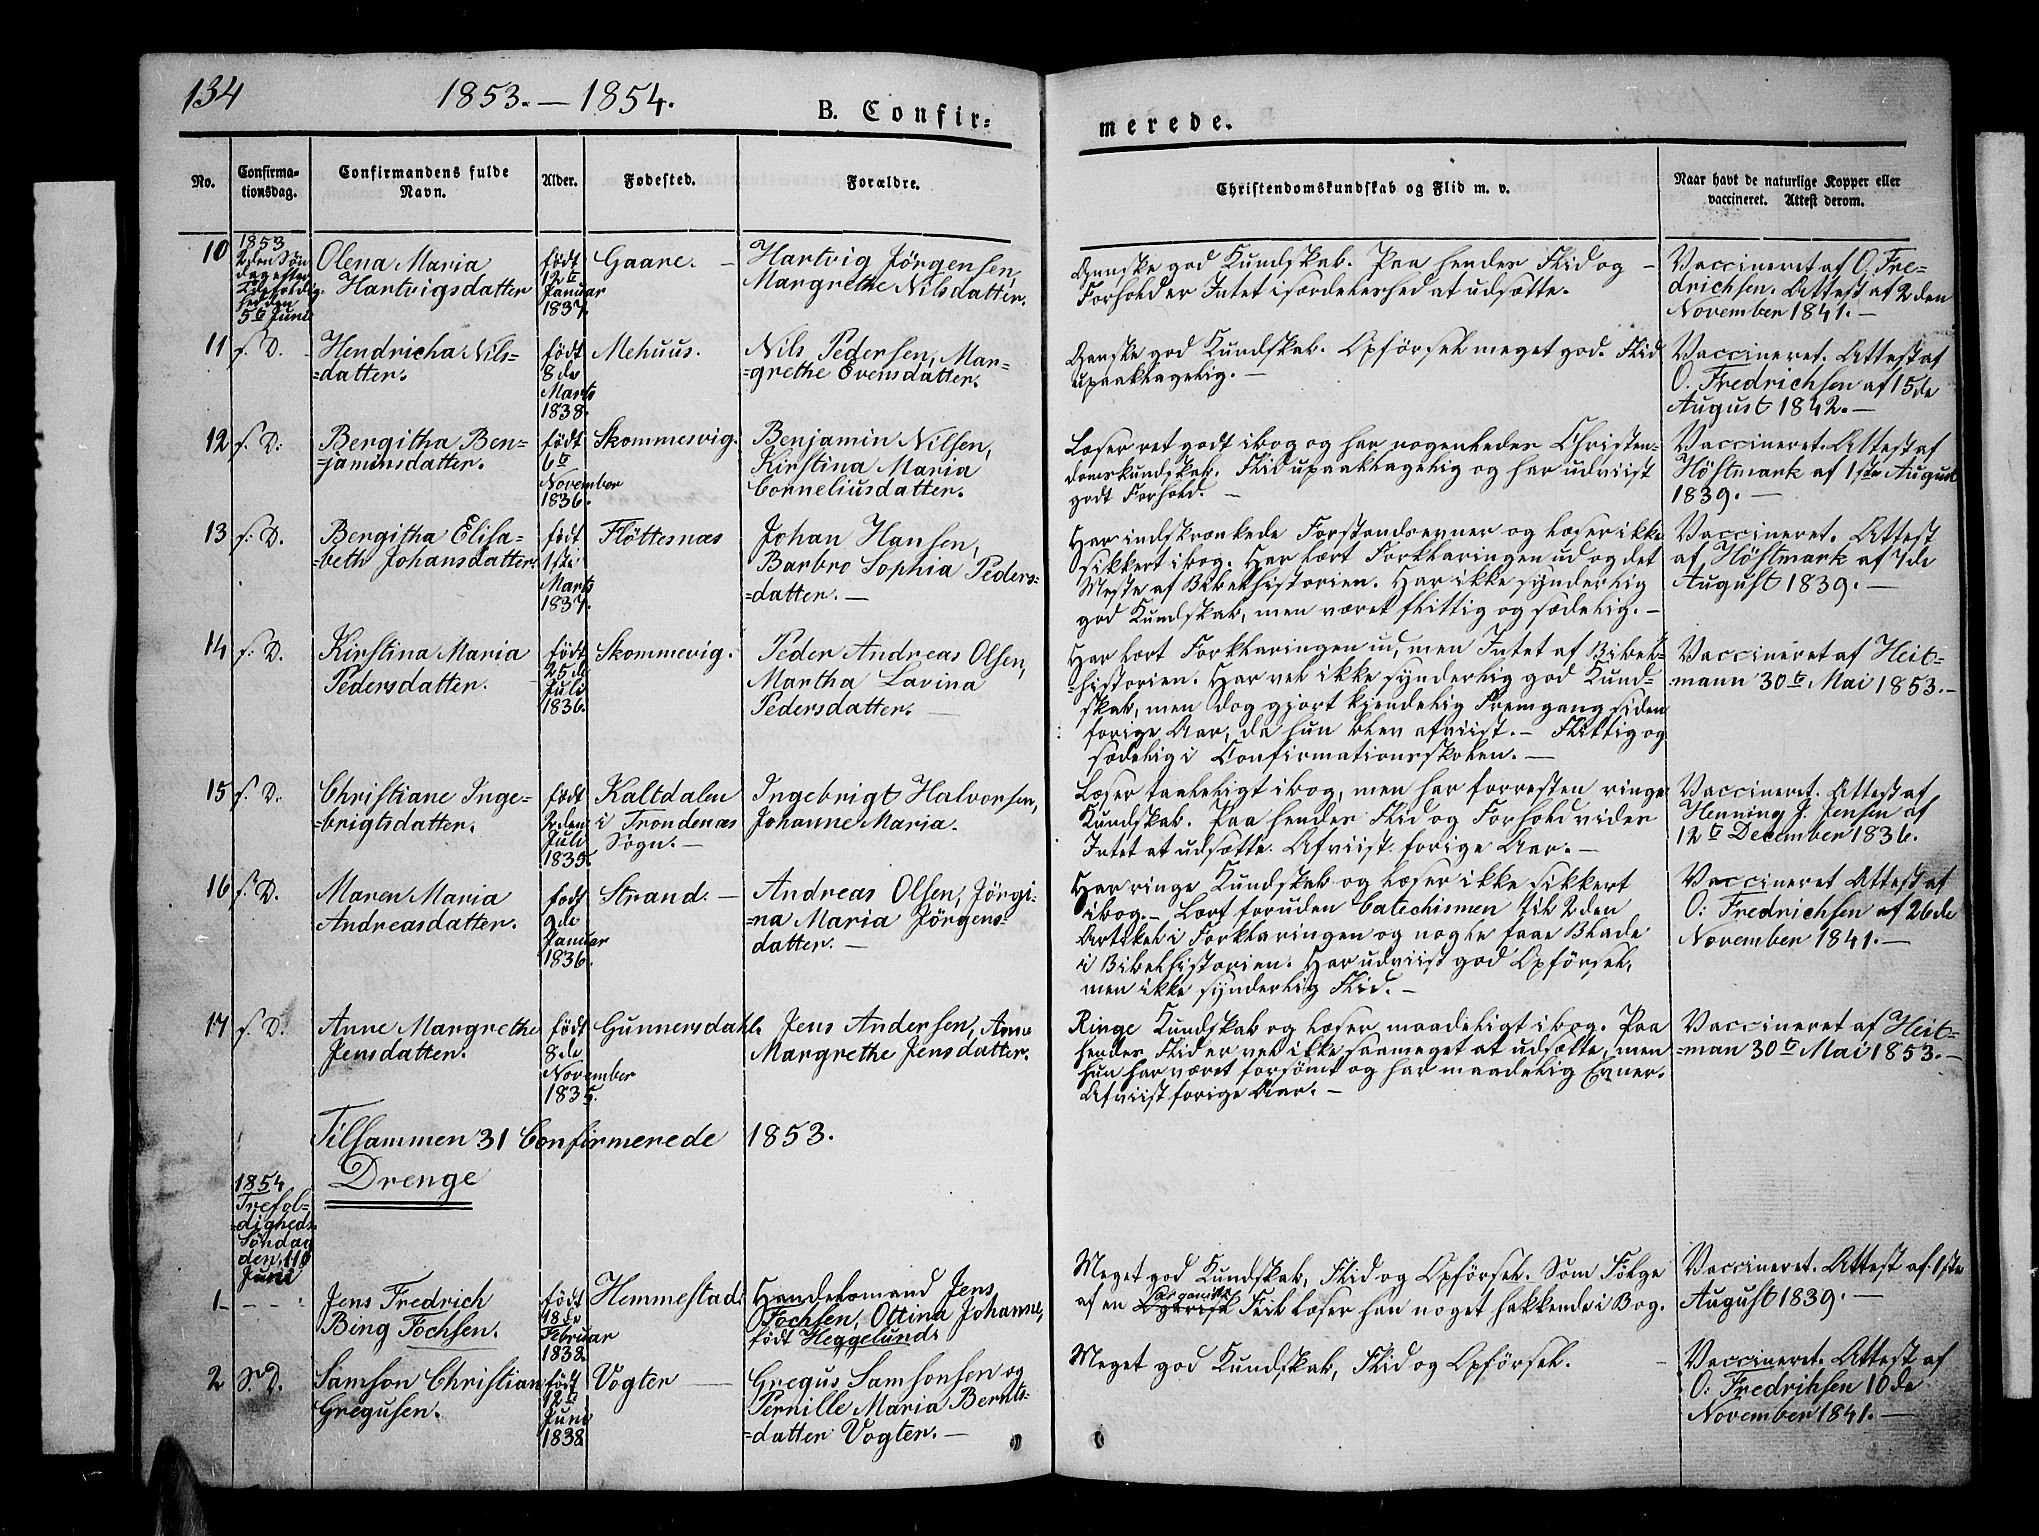 134
1853. — 1854.
B. Confir=
merede.
No.
Confirma=
tionsdag.
Confirmandens fulde
Navn.
Alder.
Fødested.
Forældre.
Christendomskundskab og Flid m. v.
Naar havt de naturlige Kopper eller
vaccineret. Attest derom.
10
1853
2den Søn
dag efter
Trefoldig
heden
5te Juni
Olena Maria
Hartvigsdatter
født
12te
Januar
1837.
Gaare. —
Hartvig Jörgensen,
Margrethe Nilsdatter.
Ganske god Kundskab. Paa hendes Flid og —
Forhold er Intet isærdeleshed at udsætte.
Vaccineret af O. Fre=
drichsen. Attest af 2den
November 1841. —
11
s. D.
Hendricha Nils=
=datter.
født
8de
Marts
1838.
Mehuus.
Nils Pedersen, Mar=
=grethe Evensdatter.
Ganske god Kundskab. Opförsel meget god. Flid
upaaklagelig. —
Vaccineret. Attest af
O. Fredrichsen af 15de
August 1842. —
12
s. D.
Bergitha Ben=
=jaminsdatter.
født
6te
November
1836.
Skommesvig.
Benjamin Nilsen,
Kirstina Maria
Corneliusdatter.
Læser ret godt i bog og har nogenledes Christen=
domskundskab. Flid upaaklagelig og har udviist
godt Forhold. —
Vaccineret. Attest af
Höstmark af 1ste August
1839. —
13
s. D.
Bergitha Elisa=
=beth Johansdatter.
født
1ste
Marts
1837.
Flöttesnæs
Johan Hansen,
Barbro Sophia Peders=
=datter. —
Har indskrænkede Forstandsevner og læser ikke
sikkert i bog. Har lært Forklaringen ud og det
Meste af Bibelhistorien. Har ikke synderlig
god Kundskab, men været flittig og sædelig. —
Vaccineret. Attest
af Höstmark af 7de
August 1839. —
14
s. D.
Kirstina Maria
Pedersdatter.
født
25de
Juli
1836.
Skommevig.
Peder Andreas Olsen,
Martha Lavina
Pedersdatter. —
Har lært Forklaringen ud, men Intet af Bibel=
=historien. Har vel ikke synderlig god Kund=
skab, men dog gjort kjendelig Fremgang siden
forige Aar, da hun blev afviist. — Flittig og
sædelig i Confirmationsskolen. —
Vaccineret af Heit=
=mann 30te Mai 1853. —
15
s. D.
Christiane Inge=
=brigtsdatter.
født
2den
Juli
1835.
Kaltdalen
i Trondenæs
Sogn. —
Ingebrigt Halvorsen,
Johanne Maria.
Læser taaleligt i bog, men har forresten ringe
Kundskab. Paa hendes Flid og Forhold vides
Intet at udsætte. Afviist forige Aar. —
Vaccineret. Attest af
Henning J. Jensen af
12te December 1836.
16
s. D.
Maren Maria
Andreasdatter.
født
9de
Januar
1836.
Strand. —
Andreas Olsen, Jörgi=
=na Maria Jörgens=
datter. —
Har ringe Kundskab og læser ikke sikkert
i bog. — Lært foruden Catechismen til 2den
Artikel i Forklaringen og nogle faae Blade
i Bibelhistorien. Har udviist god Opförsel,
men ikke synderlig Flid. —
Vaccineret Attest af
O: Fredrichsen af 26de
November 1841. —
17
s. D.
Anne Margrethe
Jensdatter.
født
8de
November
1835.
Gunnersdahl.
Jens Andersen, Anne
Margrethe Jensdatter.
Ringe Kundskab og læser maadeligt i bog. Paa
hendes Flid er vel ikke saameget at udsætte, men
hun har været forsömt og har maadelig Evner.
Afviist forige Aar. —
Vaccineret af Heit=
=man 30te Mai 1853. —
Tilsammen 31 Confirmerede 1853.
Drenge
1854
Trefol=
=digheds
Søndag
den 11te
Juni
1
Jens Fredrich
Bing Fochsen.
født
18de
Februar
1838.
Hemmestad
Handelsmand Jens
Fochsen, Ottina Johanne,
født Heggelund.
Meget god Kundskab, Flid og Opförsel. Som Fölge
af en organisk Feil læser han noget hakkende i Bog.
Vaccineret. Attest af 1ste
August 1839. —
2
S. D.
Samson Christian
Gregusen.
født
12te
Juni
1838
Vogter —
Gregus Samsonsen og
Pernille Maria Bernts=
=datter Vogter. —
Meget god Kundskab, Flid og Opförsel.
Vaccineret. Attest af
O: Fredrihsen 10de
November 1841. —